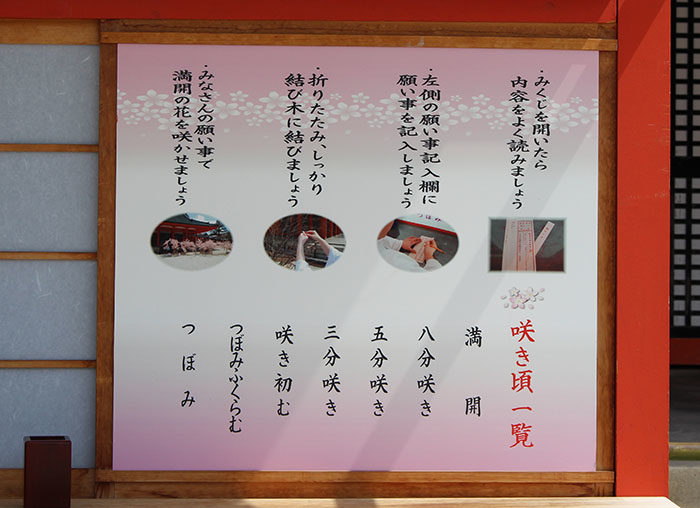 ・みくじを開いたら
内容をよく読みましょう
・左側の願い事記入欄に
願い事を記入しましょう
・折りたたみ、しっかり
結び木に結びましょう
・みなさんの願い事で
満開の花を咲かせましょう
つぼみ
咲き頃一覧
満開
八分咲き
五分咲き
三分咲き
咲き初む
つぼみふくらむ
つぼみ